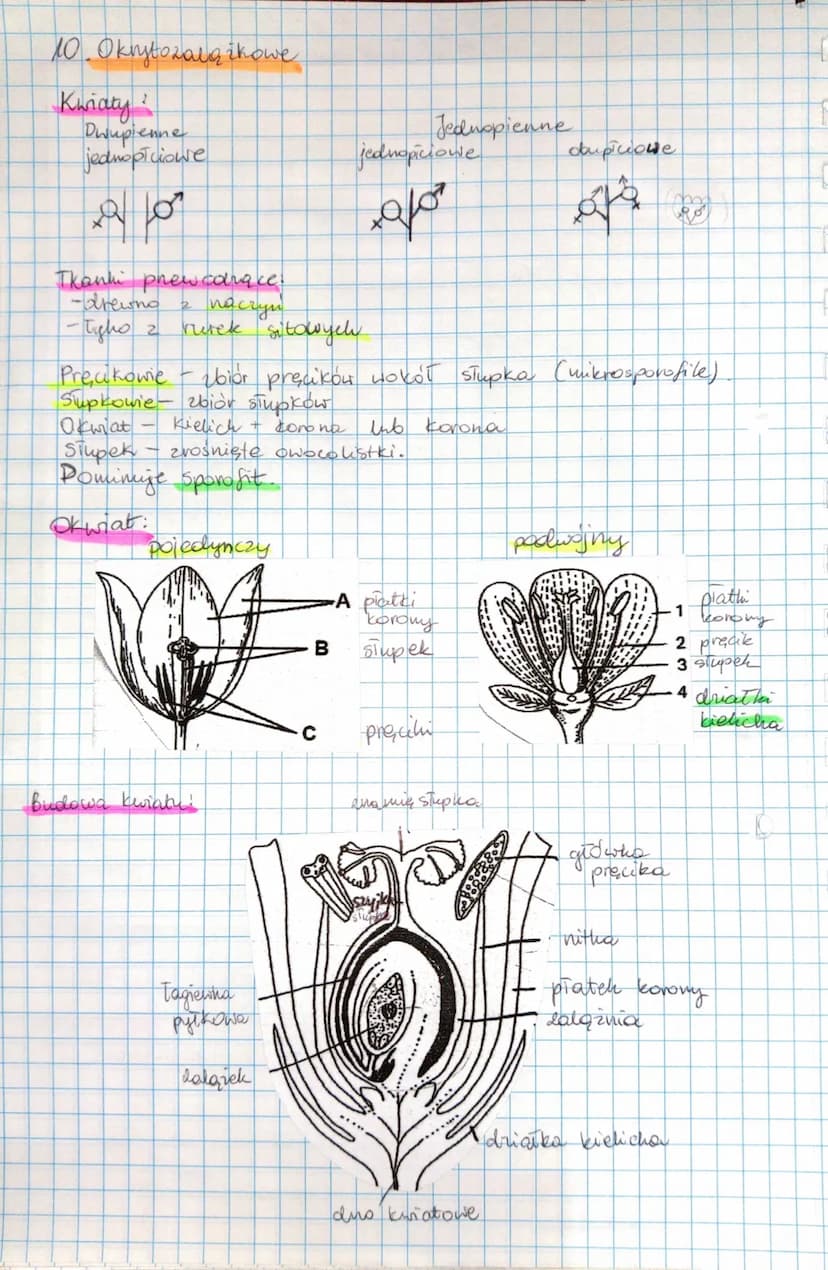 10. Okrytozalążkowe
Kwiaty:
Dwupienne
jednopłciowe
Jednopienne
jednopłciowe
obupłciowe
Tkanki przewodzące:
- drewno z naczyń
- łyko z rurek sitowych
Pręcikowie - zbiór pręcików wokół słupka (mikrosporofile).
Słupkowie - zbiór słupków
Okwiat - kielich + korona lub korona
Słupek - zrośnięte owocolistki.
Dominuje sporofit.
Okwiat:
pojedynczy
A płatki
korony
B słupek
C pręciki
podwójny
1 płatki
korony
2 pręcik
3 słupek
4 działki
kielicha
Budowa kwiatu:
znamię słupka
szyjka
słupka
główka
pręcika
nitka
płatek korony
zalążnia
łagiewka
pyłkowa
zalążek
działka kielicha
dno kwiatowe